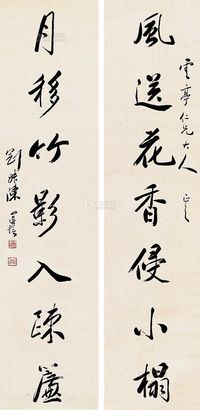 風送花香侵小榻
雲亭仁兄大人正之
月移竹影入疎簾